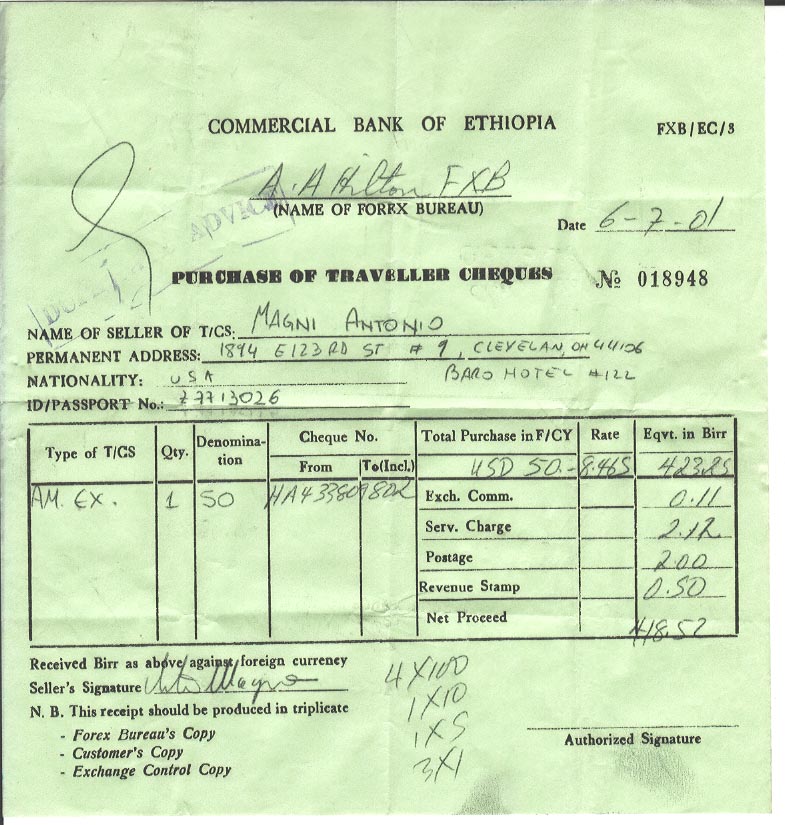 COMMERCIAL BANK OF ETHIOPIA
FXB/EC/3
A.A Hilton FXB
(NAME OF FOREX BUREAU)
Date 6-7-01
ADVICE
PURCHASE OF TRAVELLER CHEQUES № 018948
NAME OF SELLER OF T/CS: MAGNI ANTONIO
PERMANENT ADDRESS: 1894 E123RD ST # 9, CLEVELAN, OH 44106
NATIONALITY: USA BARO HOTEL #122
ID/PASSPORT No.: Z7713026
Type of T/CS Qty. Denomina-tion Cheque No. From To(Incl.) Total Purchase in F/CY Rate Eqvt. in Birr
USD 50.- 8.465 423.25
AM. EX. 1 50 HA433809802 Exch. Comm. 0.11
Serv. Charge 2.12
Postage 2.00
Revenue Stamp 0.50
Net Proceed 418.52
Received Birr as above against foreign currency
Seller's Signature
N. B. This receipt should be produced in triplicate
- Forex Bureau's Copy
- Customer's Copy
- Exchange Control Copy
4X100
1X10
1X5
3X1
Authorized Signature